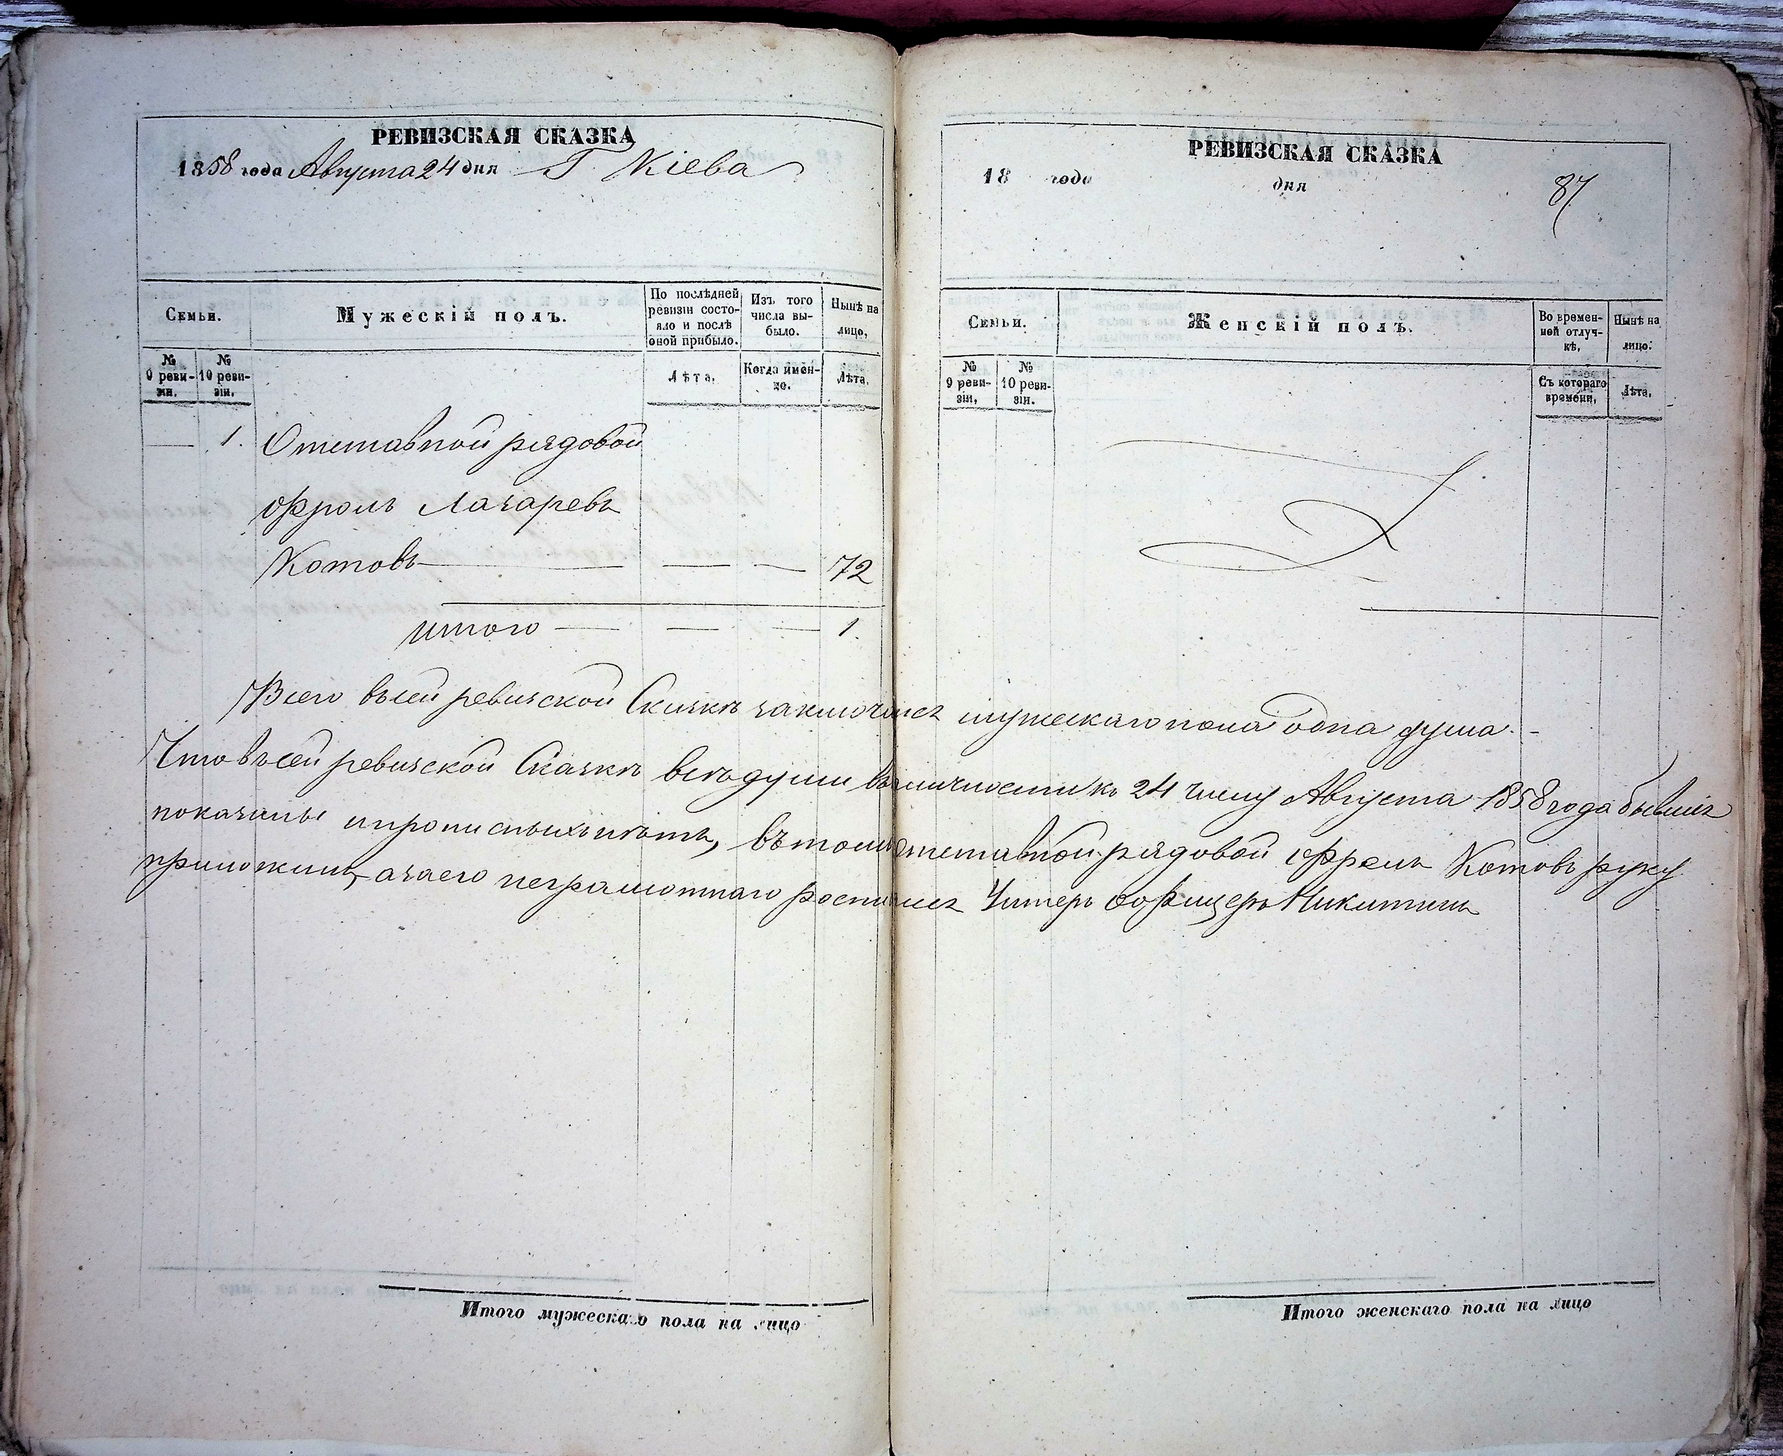 РЕВИЗСКАЯ СКАЗКА
1858 года Августа 24 дня Г Кіева
Семьи.
Мужескій полъ.
По послѣдней ревизіи состояло и послѣ оной прибыло.
Изъ того числа выбыло.
Нынѣ на лицо.
№ 9 ревизіи.
№ 10 ревизіи.
Лѣта.
Когда именно.
Лѣта.
1.
Отставной рядовой
Фролъ Лазаревъ
Котовъ 72
Итого 1.
РЕВИЗСКАЯ СКАЗКА
18 года дня 87
Семьи.
Женскій полъ.
Во временной отлучкѣ.
Нынѣ на лицо.
№ 9 ревизіи.
№ 10 ревизіи.
Съ котораго времени.
Лѣта.
Всего въ сей ревизской Сказкѣ заключается мужескаго пола одна душа.
Что въ сей ревизской Сказкѣ всѣ души въ личности къ 24 числу Августа 1858 года бывшіе
показаны и прописныхъ нѣтъ, въ томъ отставной рядовой Фролъ Котовъ руку
приложилъ, а за его неграмотнаго росписался Унтеръ офицеръ Никитинъ
Итого мужескаго пола на лицо
Итого женскаго пола на лицо